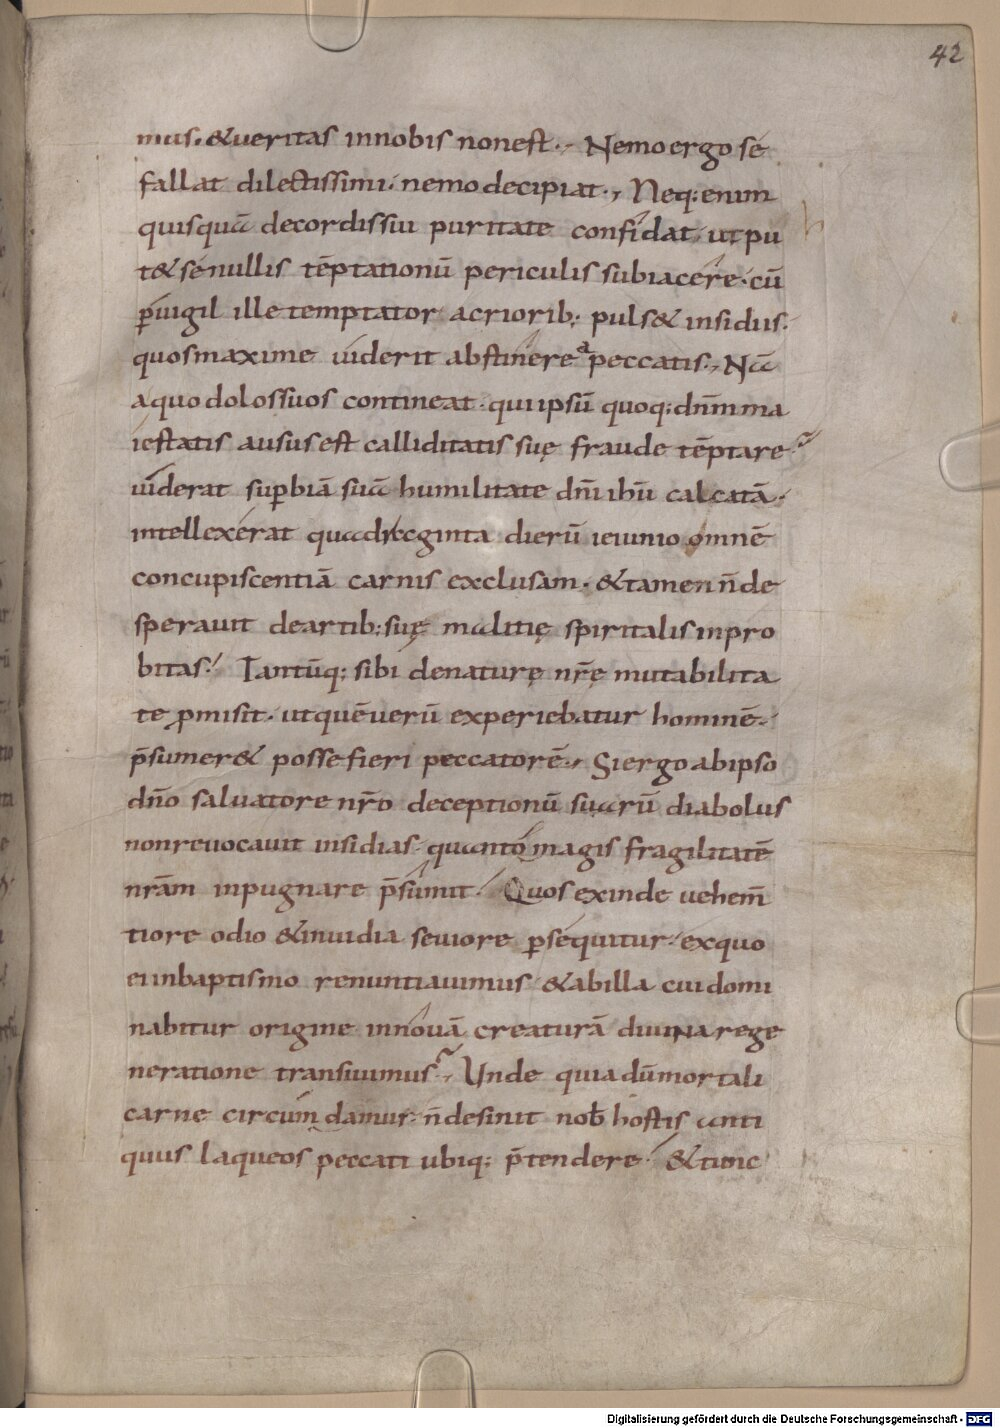 42
mus. &ueritas innobis nonest., Nemo ergo se
fallat dilectissimi. nemo decipiat., Neq; enim
quisquā decordis sui puritate confidat. ut pu
t& se nullis tēptationū periculis subiacere. cū
ꝑuigil ille temptator acriorib; puls& insidiis.
quos maxime uiderit abstinere a peccatis., Nā
a quo dolos suos contineat. qui ipsū quoq; dn̄m ma
iestatis ausus est calliditatis suę fraude tēptare
uiderat suꝑbiā suā humilitate dn̄i ihū calcatā.
intellexerat quadraginta dierū ieiunio omnē
concupiscentiā carnis exclusam. &tamen n̄ de
sperauit deartib; suę malitię spiritalis inpro
bitas. Tantūq; sibi denaturę nr̄ę mutabilita
te ꝓmisit. ut quē uerū experiebatur hominē.
p̄sumer& posse fieri peccatorē., Si ergo ab ipso
dn̄o saluatore nr̄o deceptionū suarū diabolus
non reuocauit insidias. quanto magis fragilitatē
nr̄am inpugnare p̄sumit. Quos exinde uehem̄
tiore odio &inuidia seuiore ꝑsequitur. ex quo
ei inbaptismo renuntiauimus &ab illa cui domi
nabitur origine innouā creaturā diuina rege
neratione transiuimus., Unde quia dū mortali
carne circumdamur. n̄ desinit nob̄ hostis anti
quus laqueos peccati ubiq; p̄tendere. &tunc
Digitalisierung gefördert durch die Deutsche Forschungsgemeinschaft - DFG